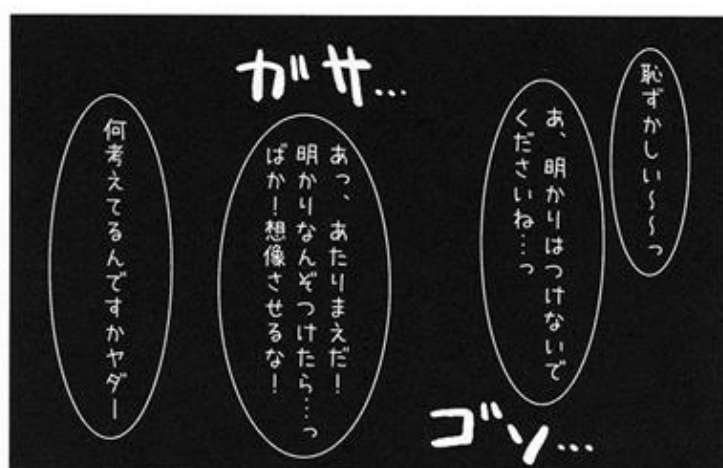 恥ずかしい～～っ
あ、明かりはつけないで
くださいね…っ
ゴソ…
ガサ…
あっ、あたりまえだ！
明かりなんぞつけたら…っ
ばか！想像させるな！
何考えてるんですかヤダー